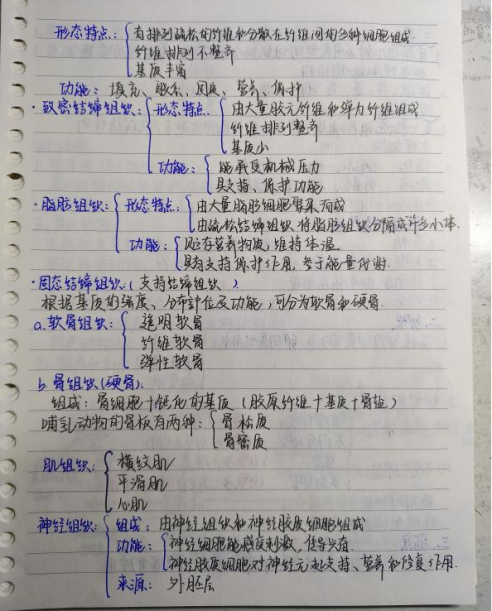 形态特点：有排列疏松的纤维和分散在纤维间的多种细胞组成.
纤维排列不整齐
基质丰富
功能：填充、联系、固定、营养、保护
·致密结缔组织：形态特点 由大量胶元纤维和弹力纤维组成
纤维排列整齐
基质少
功能：能承受机械压力
具支持、保护功能
·脂肪组织：形态特点：由大量脂肪细胞聚集而成
由疏松结缔组织将脂肪组织分隔成许多小体.
功能：贮存营养物质，维持体温
具有支持保护作用，参于能量代谢.
·固态结缔组织：（支持结缔组织）
根据基质的硬度、分布部位及功能，可分为软骨和硬骨.
a.软骨组织：透明软骨
纤维软骨
弹性软骨
b.骨组织(硬骨)：
组成：骨细胞+钙化的基质（胶原纤维+基质+骨盐）
哺乳动物的骨板有两种：骨松质
骨密质
肌组织：横纹肌
平滑肌
心肌
神经组织：组成：由神经组织和神经胶质细胞组成
功能：神经细胞能感受刺激，传导兴奋.
神经胶质细胞对神经元起支持、营养和修复作用.
来源：外胚层